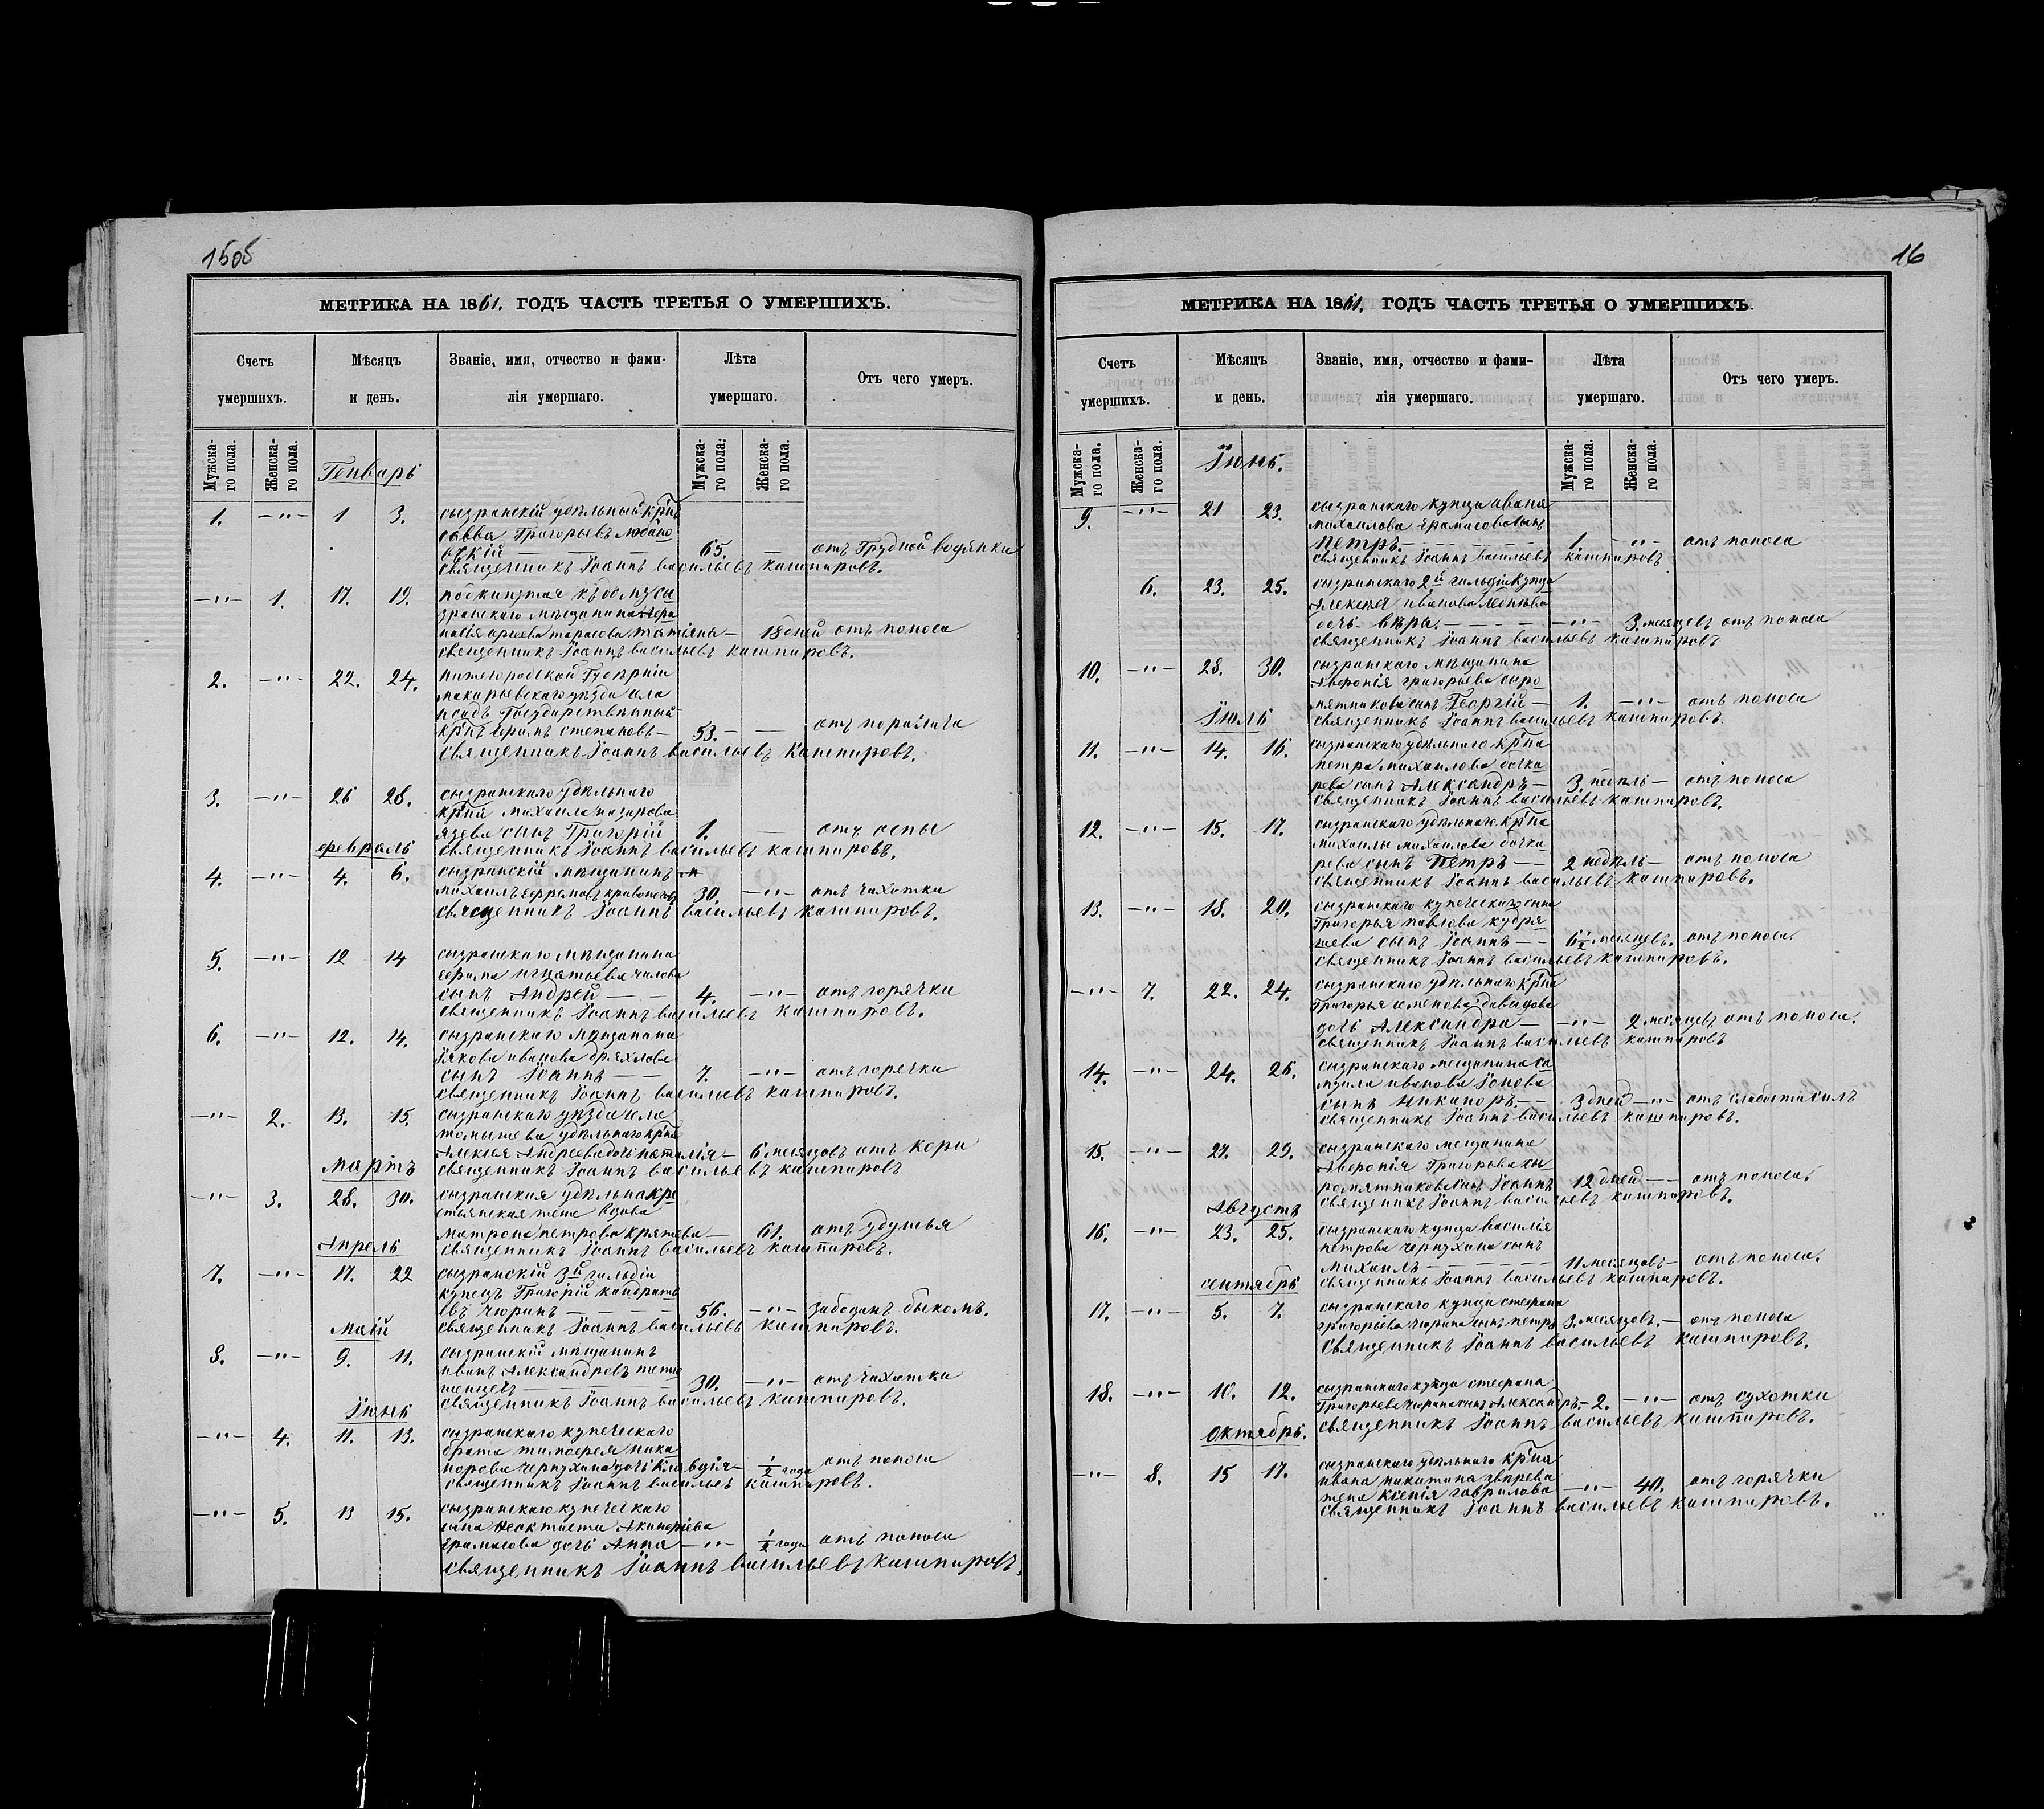 1505
МЕТРИКА НА 1861. ГОДЪ ЧАСТЬ ТРЕТЬЯ О УМЕРШИХЪ.
Счетъ умершихъ.
Мѣсяцъ и день.
Званіе, имя, отчество и фами-
лія умершаго.
Лѣта умершаго.
Отъ чего умеръ.
Мужска-
го пола.
Женска-
го пола.
Мужска-
го пола.
Женска-
го пола.
Генварь
1. —"— 1 3. сызранскій удѣльный кр̃нъ
савва Григорьевъ
65. — отъ Грудной водянки
священникъ Іоаннъ васильевъ кашпировъ.
—"— 1. 17. 19. подкинутая къ дому сы
зранскаго мѣщанина
тарасова татіяна — 18 дней отъ поноса
священникъ Іоаннъ васильевъ кашпировъ.
2. —"— 22. 24. нижегородской Губерніи
макарьевскаго уѣзда села
Государственный
кр̃нъ степановъ — 53. — — отъ паралича
священникъ Іоаннъ васильевъ кашпировъ.
3. —"— 26 28. сызранскаго удѣльнаго
михаила назарова
сынъ Григорій 1. — отъ оспы
февраль священникъ Іоаннъ васильевъ кашпировъ.
4. —"— 4. 6. сызранскій мѣщанинъ
михаилъ ефремовъ 30. —"— отъ чахотки
священникъ Іоаннъ васильевъ кашпировъ.
5. —"— 12 14 сызранскаго мѣщанина
ефима игнатьева чалова
сынъ Андрей — — 4. —"— отъ горячки
священникъ Іоаннъ васильевъ кашпировъ.
6. —"— 12. 14. сызранскаго мѣщанина
іякова иванова дряхлова
сынъ Іоаннъ — — 7. —"— отъ горячки
священникъ Іоаннъ васильевъ кашпировъ.
—"— 2. 13. 15. сызранскаго уѣзда села
томышева удѣльнаго кр̃на
Алексея Андреева дочь наталія — 6 месяцовъ отъ кори
мартъ священникъ Іоаннъ васильевъ кашпировъ
—"— 3. 28. 30. сызранская удѣльна кре
стьянская жена вдова
матрона петрова — 61. отъ удушья
Апрель священникъ Іоаннъ васильевъ кашпировъ.
7. —"— 17. 22 сызранскій 3й гильдіи
купецъ Григорій кандрать
евъ чюринъ — — — — 56. —"— забоданъ быкомъ.
маій священникъ Іоаннъ васильевъ кашпировъ.
8. —"— 9. 11. сызранскій мѣщанинъ
иванъ Александровъ
30. —"— отъ чахотки
Іюнь священникъ Іоаннъ васильевъ кашпировъ.
—"— 4. 11. 13. сызранскаго купеческаго
брата тимофея ника
норова чернухина дочь Клавдія — ½ года отъ поноса
священникъ Іоаннъ васильевъ кашпировъ.
—"— 5. 13 15. сызранскаго купеческаго
сына
ерамасова дочь Анна —"— ½ года отъ поноса
священникъ Іоаннъ васильевъ кашпировъ.
16
МЕТРИКА НА 1861. ГОДЪ ЧАСТЬ ТРЕТЬЯ О УМЕРШИХЪ.
Счетъ умершихъ.
Мѣсяцъ и день.
Званіе, имя, отчество и фами-
лія умершаго.
Лѣта умершаго.
Отъ чего умеръ.
Мужска-
го пола.
Женска-
го пола.
Мужска-
го пола.
Женска-
го пола.
Іюнь.
9. —"— 21 23. сызранскаго купца ивана
михаилова ерамасова сынъ
петръ. — — — — 1. —"— отъ поноса
священникъ Іоаннъ васильевъ кашпировъ
6. 23. 25. сызранскаго 2й гильдіи купца
Алексея иванова
дочь вѣра. — — — —"— 3. месяцевъ отъ поноса
священникъ Іоаннъ васильевъ кашпировъ
10. —"— 28. 30. сызранскаго мѣщанина
григорьева сыро
мятникова сынъ Георгій — 1. —"— отъ поноса
Іюль священникъ Іоаннъ васильевъ кашпировъ.
11. —"— 14. 16. сызранскаго удѣльнаго кр̃на
петра михаилова бочка
рева сынъ Александръ — 3. недѣль — отъ поноса
священникъ Іоаннъ васильевъ кашпировъ.
12. —"— 15. 17. сызранскаго удѣльнаго кр̃на
михаилы михаилова бочка
рева сынъ петръ — — 2 недѣль — отъ поноса
священникъ Іоаннъ васильевъ кашпировъ.
13. —"— 18. 20. сызранскаго купеческаго сына
Григорья павлова кудря
шева сынъ Іоаннъ — — 6½ месяцевъ. отъ поноса.
священникъ Іоаннъ васильевъ кашпировъ.
—"— 7. 22. 24. сызранскаго удѣльнаго кр̃на
Григорья семенова давыдова
дочь Александра — —"— 2 месяцевъ отъ поноса.
священникъ Іоаннъ васильевъ кашпировъ
14. —"— 24. 26. сызранскаго мещанина са
муила иванова Іонова
сынъ Никаноръ. — — 3 дней —"— отъ слабости силъ
священникъ Іоаннъ васильевъ кашпировъ.
15. —"— 27. 29. сызранскаго мещанина
Григорьева сы
ромятникова сынъ Іоаннъ 12 дней — — отъ поноса.
Августъ священникъ Іоаннъ васильевъ кашпировъ.
16. —"— 23. 25. сызранскаго купца василія
петрова чернухина сынъ
михаилъ — — — — 11 месяцовъ — отъ поноса.
сентябрь священникъ Іоаннъ васильевъ кашпировъ.
17. —"— 5. 7. сызранскаго купца стефана
григорьева чюрина сынъ петръ 3. месяцовъ. — отъ поноса
священникъ Іоаннъ васильевъ кашпировъ.
18. —"— 10. 12. сызранскаго купца стефана
Григорьева чюрина сынъ Александръ. — 2. —"— отъ сухотки
Октябрь. священникъ Іоаннъ васильевъ кашпировъ.
—"— 8. 15 17. сызранскаго удѣльнаго кр̃на
ивана никитина звѣрева
жена ксенія гаврилова —"— 40. отъ горячки
священникъ Іоаннъ васильевъ кашпировъ.